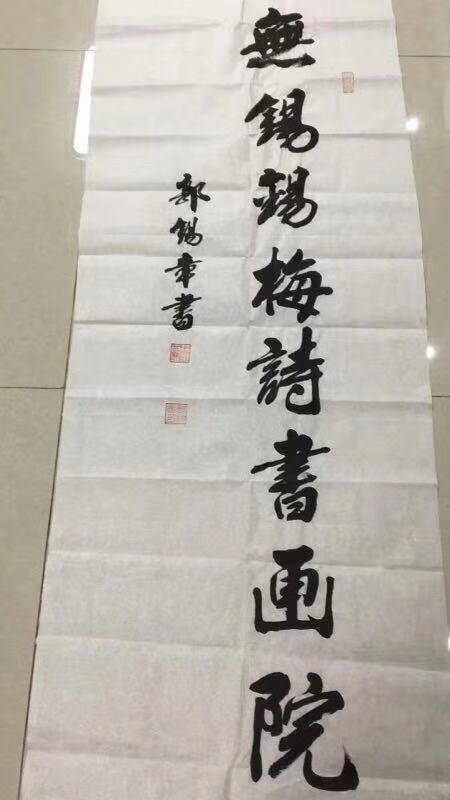 無錫錫梅詩書画院
郭錫章書